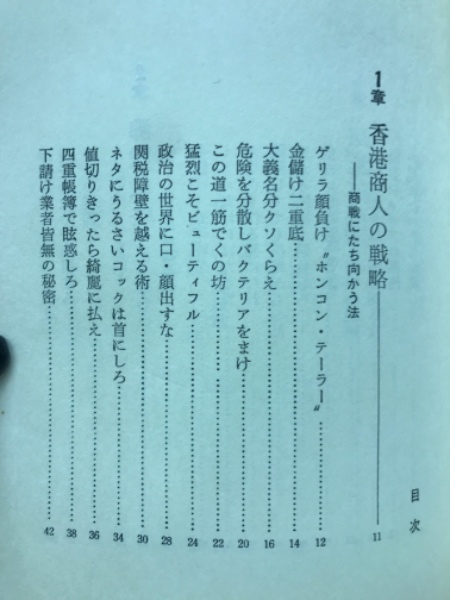 目次
1章 香港商人の戦略 11
──商戦にたち向かう法
ゲリラ顔負け〝ホンコン・テーラー〟 12
金儲け二重底 14
大義名分クソくらえ 16
危険を分散しバクテリアをまけ 20
この道一筋でくの坊 22
猛烈こそビューティフル 24
政治の世界に口・顔出すな 28
関税障壁を越える術 30
ネタにうるさいコックは首にしろ 34
値切りきったら綺麗に払え 36
四重帳簿で眩惑しろ 38
下請け業者皆無の秘密 42